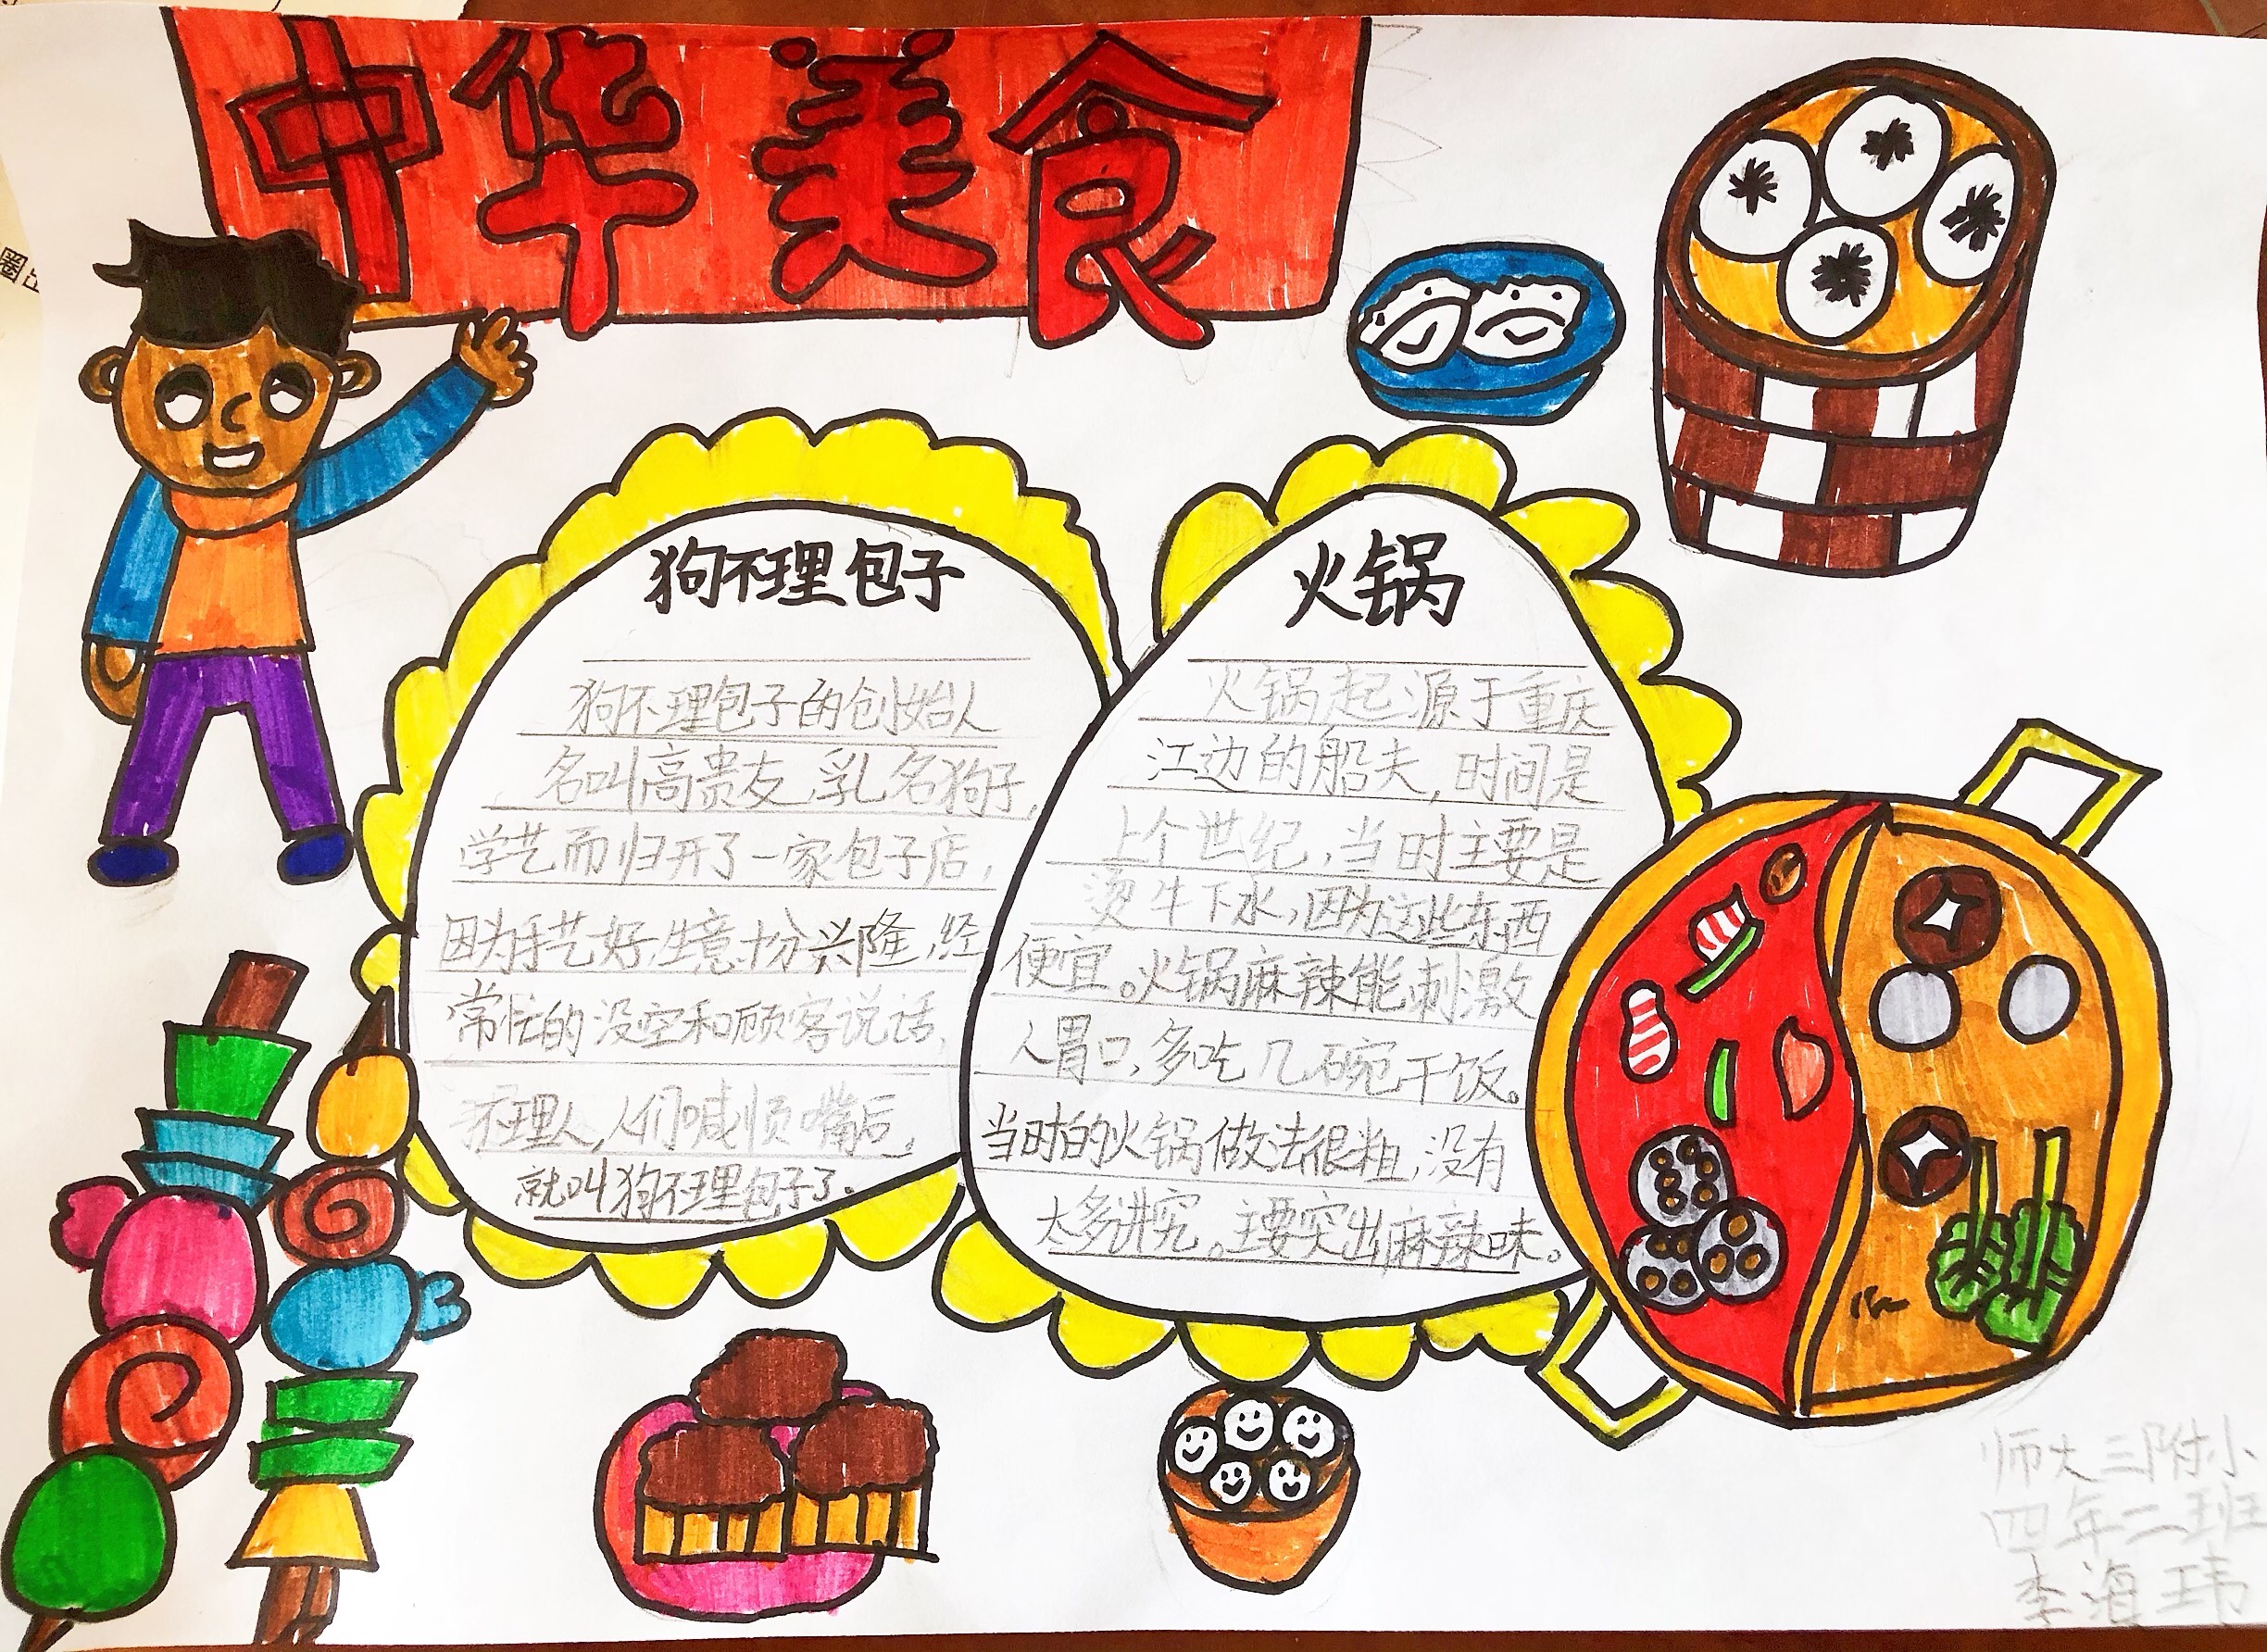 中华美食
狗不理包子
狗不理包子的创始人
名叫高贵友,乳名狗子,
学艺而归开了一家包子店,
因为手艺好,生意十分兴隆,经
常忙的没空和顾客说话,
不理人,人们喊顺嘴后,
就叫狗不理包子了。
火锅
火锅起源于重庆
江边的船夫,时间是
上个世纪,当时主要是
烫牛下水,因为这些东西
便宜。火锅麻辣能刺激
人胃口,多吃几碗干饭。
当时的火锅做法很粗,没有
太多讲究。主要突出麻辣味。
师大三附小
四年二班
李海玮